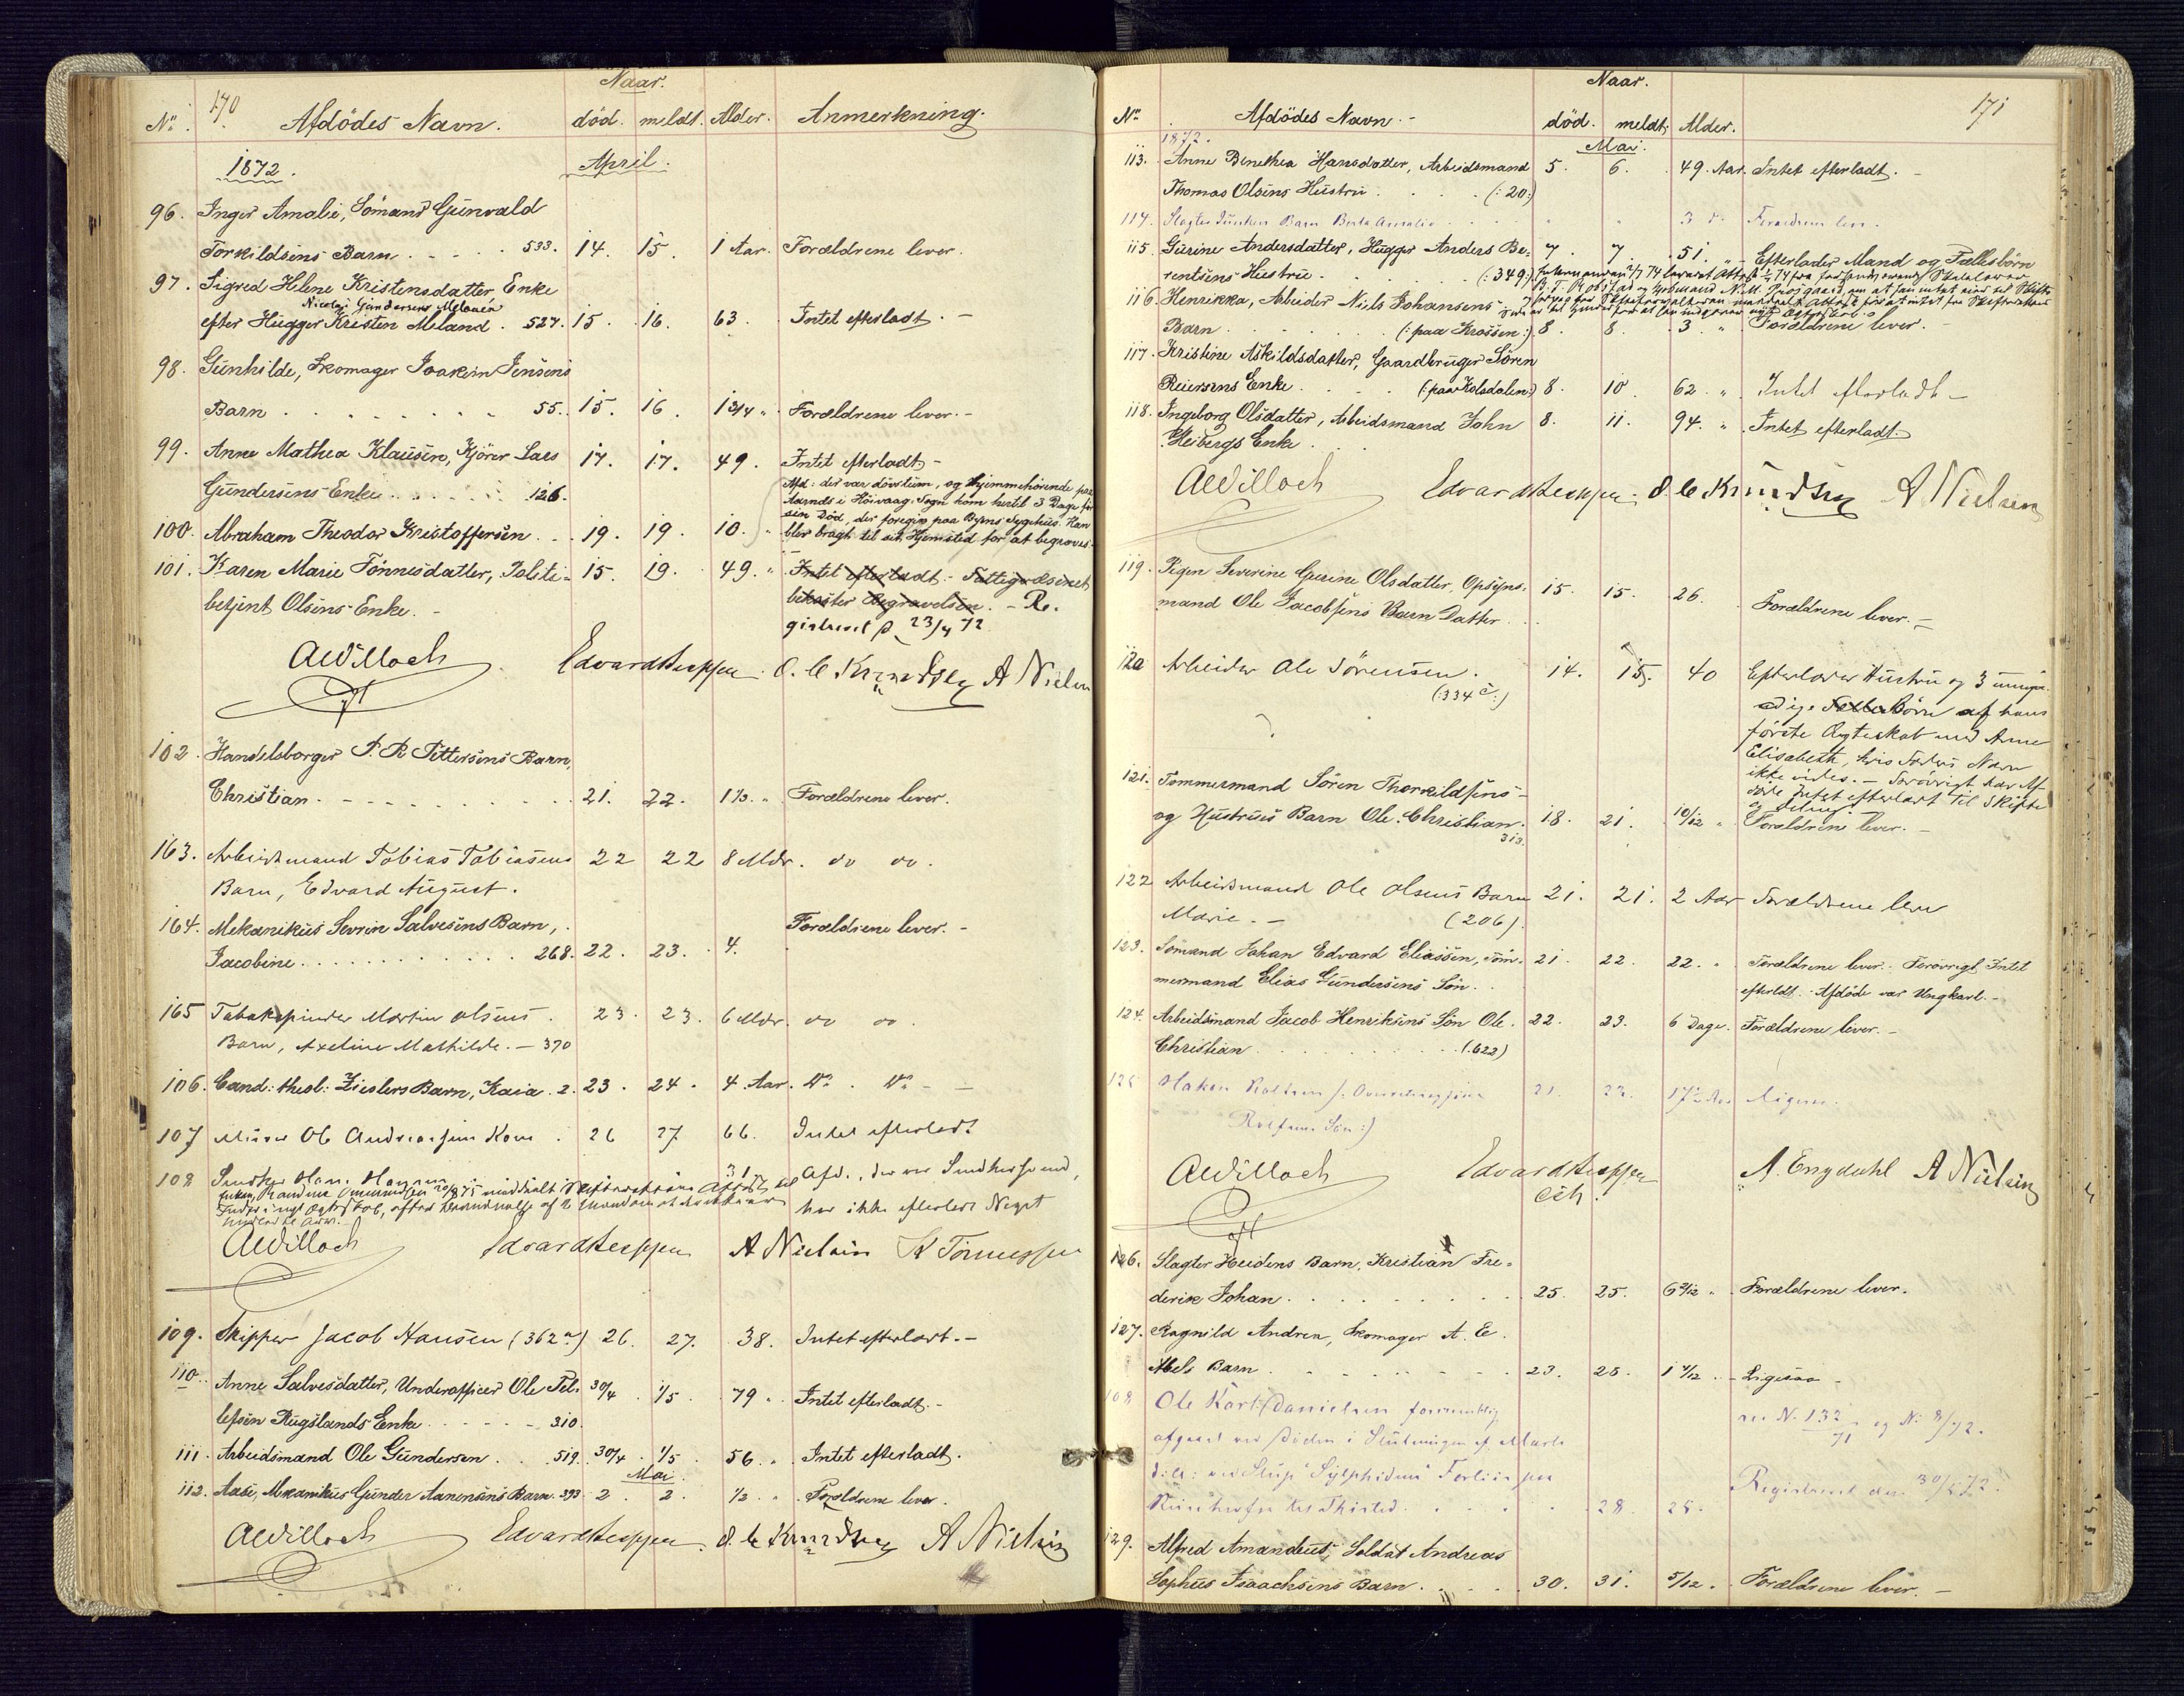 170
Naar.
No. Afdödes Navn. död. meldt. Alder. Anmerkning.
1872. April.
96. Inger Amalie, Sömand Gunvald
Torkildsens Barn . . . . 533. 14. 15. 1 Aar. Forældrene lever.
97. Sigred Helene Kristensdatter Enke
Nicolai Gundersens
efter Hugger Kristen Meland. 527. 15. 16. 63. Intet efterladt. -
98. Gunhilde, Skomager Joakim Jensens
Barn . . . . . . . 55. 15. 16. 1 3/4 " Forældrene lever. -
99. Anne Mathea Klausen, Kjörer Lars 17. 17. 49. Intet efterladt -
Gundersens Enke . . . . . 126.
Afd: der var dövstum, og hjemmehörende paa
Aarnes i Höivaag Sogn kom hertil 3 Dage för
sin Död, der foregik paa Byens Sygehus. Han
100. Abraham Theodor Kristoffersen . . 19. 19. 10. " blev bragt til sit Hjemsted for at begraves.
101. Karen Marie Tönnesdatter, Politi= 15. 19. 49. " Intet efterladt - Fattigvæsenet
betjent Olsens Enke. - bekoster Begravelsen. - Re-
gistreret d. 23/4 72
AWilloch Edvard Beppen O. C. Knudsen A Nielsen
102. Handelsborger P. R. Pettersens Barn,
Christian. - - - - - . . 21. 22. 1 1/3. " Forældrene lever.
103. Arbeidsmand Tobias Tobiasens 22 22 8 Mdr. do do.
Barn, Edvard August.
104. Mekanikus Sevrin Salvesens Barn, Forældrene lever. -
Jacobine . . . . . . . . . 268. 22. 23. 4.
105 Tobakspinder Martin Olsens. 23. 23. 6 Mdr. do do.
Barn, Axeline Mathilde. - 370
106. Cand: theol: Zieslers Barn, Kaia. 2. 23. 24. 4 Aar. Do. Do. -
107 Murer Ole Andreassens Kone . 26 27. 66. Intet efterladt
108 Snedker Hans
har ikke efterladt Noget
AWilloch Edvard Beppen A Nielsen K Tönnessen
109. Skipper Jacob Hansen (362 a) 26. 27. 38. Intet efterladt. -
110. Anne Salvesdatter, Underofficer Ole Tel- 30/4 1/5 79 " Intet efterladt. -
lefsen Rugslands Enke . . . . - 310.
111. Arbeidsmand Ole Gundersen . . 519. 30/4 1/5 56. " Intet efterladt.
Mai.
112. Aase, Mekanikus Gunder Aanensens Barn. 393 2. 2. 1/2. " Forældrene lever.
AWilloch Edvard Beppen. O. C. Knudsen A Nielsen
171
Naar.
No. Afdödes Navn. - död. meldt. Alder.
1872. Mai.
113. Anne Benethea Hansdatter, Arbeidsmand 5. 6. 49. Aar. Intet efterladt. -
Thomas Olsens Hustru . . . . (: 20:)
114. Slagter Barn Berta Amalie " " 3 Do Forældrene leve.
115. Gurine Andersdatter, Hugger Anders Be- 7. 7. 51. " Efterlader Mand og Fællesbörn
rentsens Hustru . . . . (:349:)
116. Henrikka, Arbeider Niels Johansens
Barn . . . . . . (: paa Krossen:) 8. 8. 3 " Forældrene lever. -
117. Kristine Askildsdatter, Gaardbruger Sören
Reiersens Enke . . . (: paa Kolsdalen:) 8. 10. 62. " Intet efterladt -
118. Ingeborg Olsdatter, Arbeidsmand John 8. 11. 94. " Intet efterladt.
Heibergs Enke . . .
AWilloch Edvard Beppen. O. C. Knudsen A Nielsen
119. Pigen Severine Gurine Olsdatter, Opsyns- 15. 15. 26. Forældrene lever. -
mand Ole Jacobsens Barn Datter . .
120 Arbeider Ole Sörensen. 14. 15. 40 Efterlader Hustru og 3 umyn-
(:334 c:) dige Börn af hans
förste Ægteskab med Anne
Elisabeth, hvis Faders Navn
ikke vides. - Forövrigt har Af-
döde Intet efterladt til Skifte
121. Tömmermand Sören Thorkildsens -
og Hustrues Barn Ole Christian. 18. 21. 10/12 " Forældrene lever. -
313.
122 Arbeidsmand Ole Olsens Barn 21. 21. 2 Aar Forældrene leve
Marie. - (206).
123. Sömand Johan Edvard Eliassen, töm- 21. 22. 22. " Forældrene lever. Forövrigt Intet
mermand Elias Gundersens Sön . . efterldt. Afdöde var Ungkarl. -
124. Arbeidsmand Jacob Henriksens Sön Ole. 22. 23. 6 Dage. Forældrene lever. -
Christian . . . . . . . (.622)
125 Hakon Rolfsen 21. 22. 17 1/2 Aar Ligesaa.
Rolfsens Sön:)
AWilloch Edvard Beppen A. Engdahl A Nielsen
126. Slagter Heidens Barn, Kristian Fre-
derik Johan . . . . . . . 25. 25. 6 2/12 " Forældrene lever.
127. Ragnild Andrea, Skomager A. E.
Abels Barn . . . . . . . 23. 25. 1 4/12 . - Ligesaa -
128 Ole Karl Danielsen formentlig se No. 132/71 og No. 8/72.
afgaaet ved Döden i Slutningen af Marts
d. A: ved Slup "Sylphidens" Forliis paa
til Thisted . . . 28. 28. Registreret den 30/5 72.
129. Alfred Amandus, Soldat Andreas
Sophus Isaachsens Barn . . . . 30. 31. 5/12. Forældrene lever. -